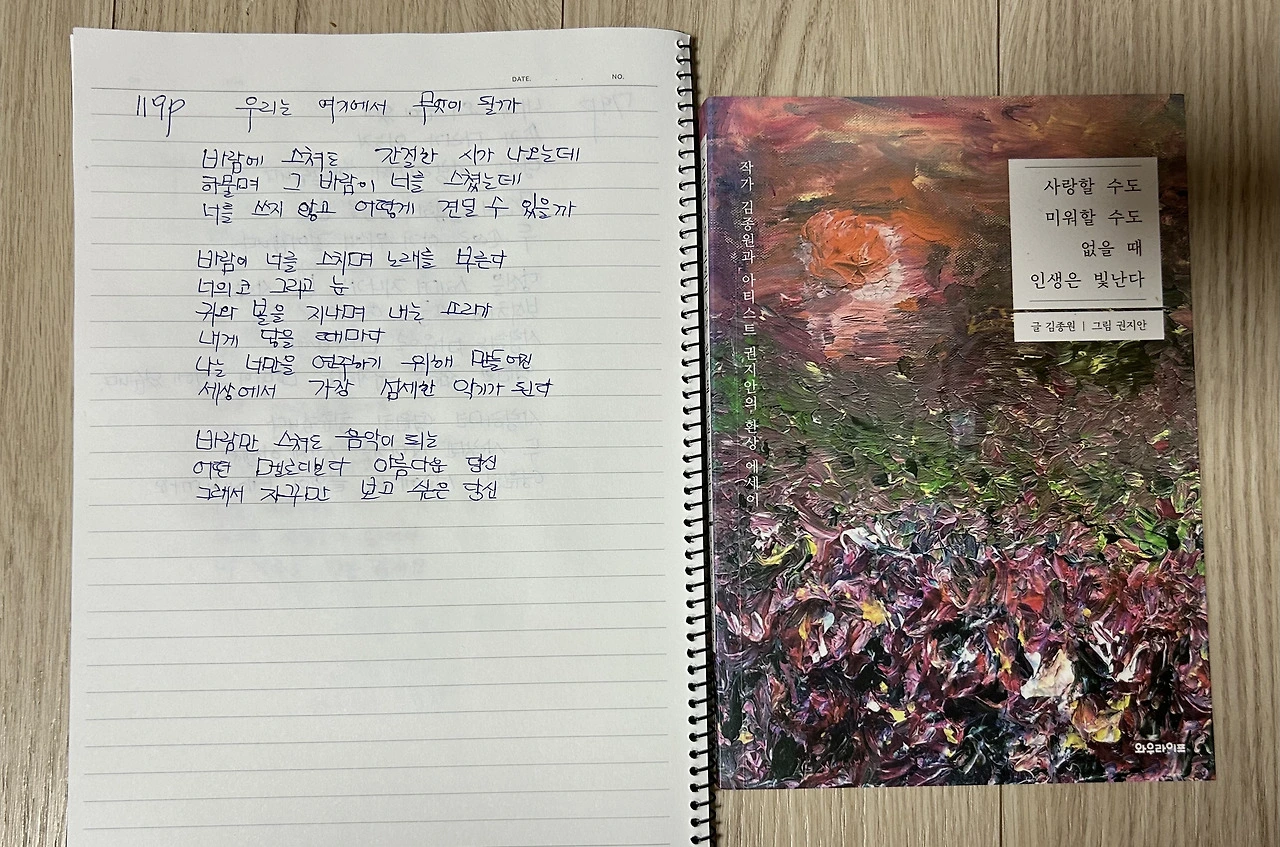 DATE. . . NO.
119p 우리는 여기에서 무엇이 될까
바람에 스쳐도 간절한 시가 나오는데
하물며 그 바람이 너를 스쳤는데
너를 쓰지 않고 어떻게 견딜 수 있을까
바람이 너를 스치며 노래를 부른다
너의 코 그리고 눈
귀와 볼을 지나며 내는 소리가
내게 닿을 때마다
나는 너만을 연주하기 위해 만들어진
세상에서 가장 섬세한 악기가 된다
바람만 스쳐도 음악이 되는
어떤 멜로디보다 아름다운 당신
그래서 자꾸만 보고 싶은 당신
작가 김종원과 아티스트 권지안의 환상 에세이
사랑할 수도
미워할 수도
없을 때
인생은 빛난다
글 김종원 | 그림 권지안
와우라이프